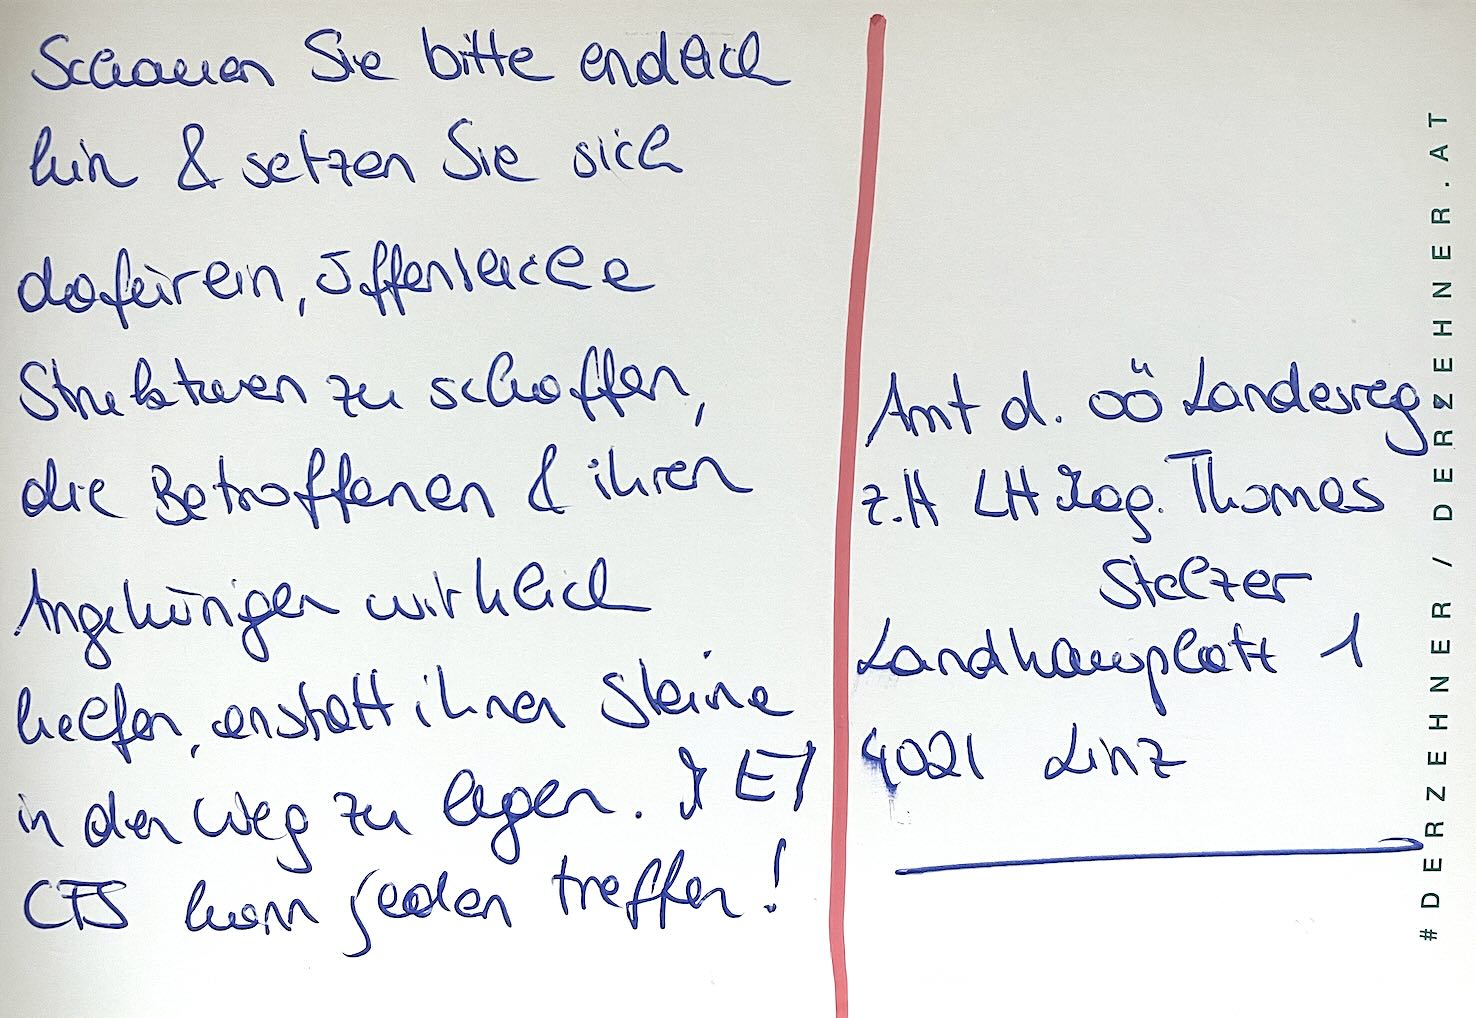 Schauen Sie bitte endlich
hin & setzen Sie sich
dafür ein, öffentliche
Strukturen zu schaffen,
die Betroffenen & ihren
Angehörigen wirklich
helfen, anstatt ihnen Steine
in den Weg zu legen. ME/
CFS kann jeden treffen!
Amt d. OÖ Landesreg.
z.H LH Mag. Thomas
Stelzer
Landhausplatz 1
4021 Linz
#DERZEHNER / DERZEHNER / DERZEHNER.AT